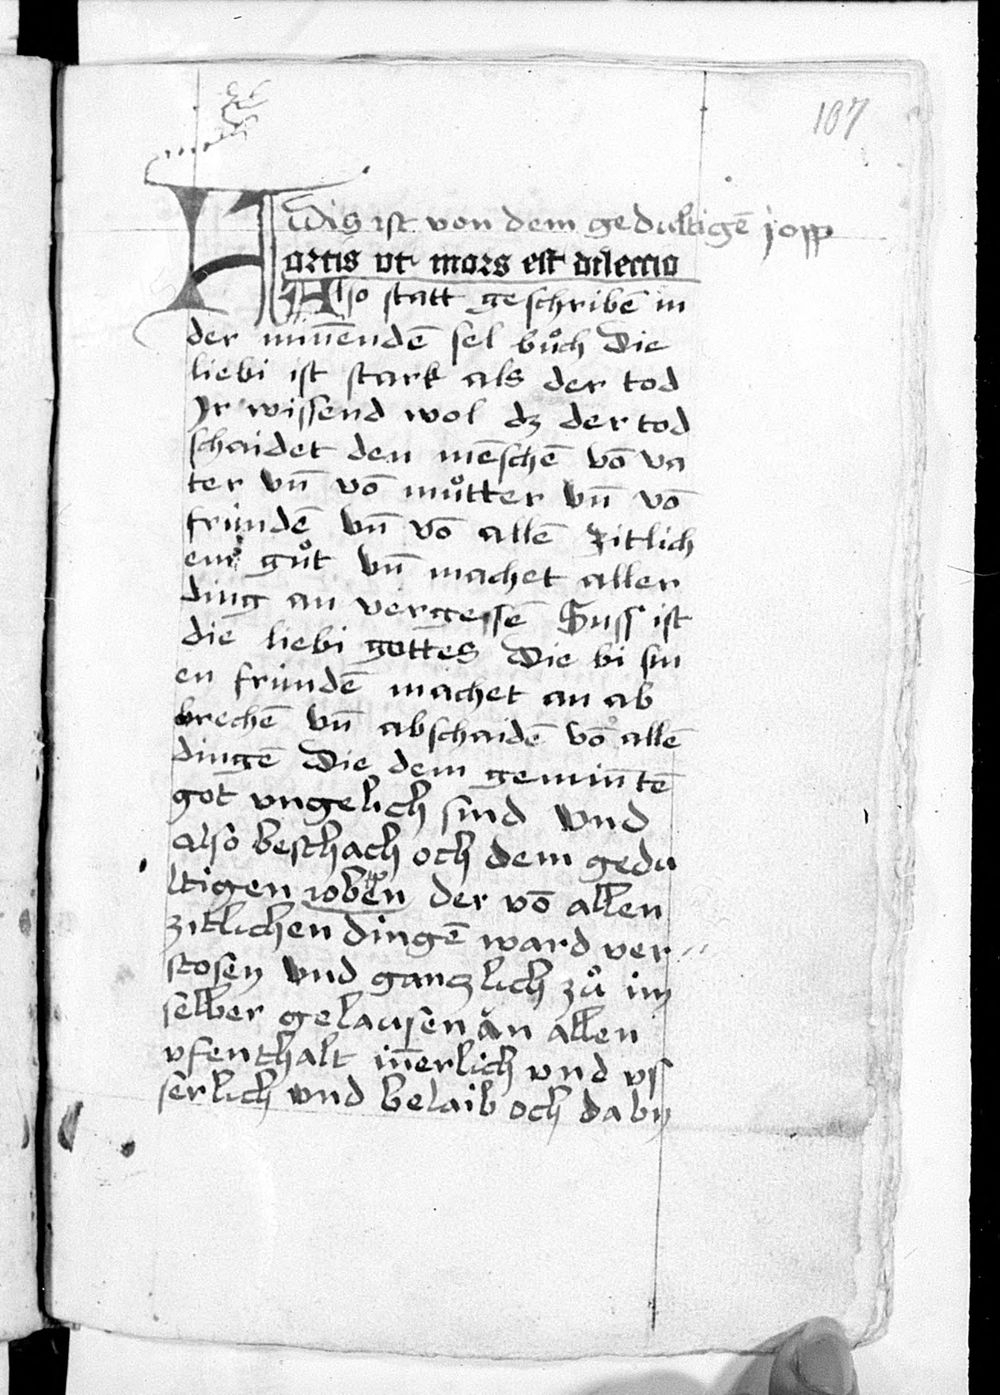 107
Dis ist von dem gedultigē jopp
Fortis vt mors est dileccio
Also statt geschribē in
der miñendē sel bůch Die
liebi ist stark als der tod
Jr wissend wol dz der tod
schaidet den mēschē vō va
ter vñ vō můtter vñ vō
fründē vñ vō allē zitlich
em gůt vñ machet aller
ding an vergessē Suss ist
die liebi gottes Die bi sin
en fründē machet an ab
brechē vñ abschaidē vō allē
dingē Die dem gemiñtē
got vngelich sind vnd
also beschach och dem gedu
ltigen Joben der vō allen
zitlichen dingē ward ver
stosen vnd ganczlich zů im
selber gelausen än allen
vfenthalt iñerlich vnd vs
serlich vnd belaib och da by